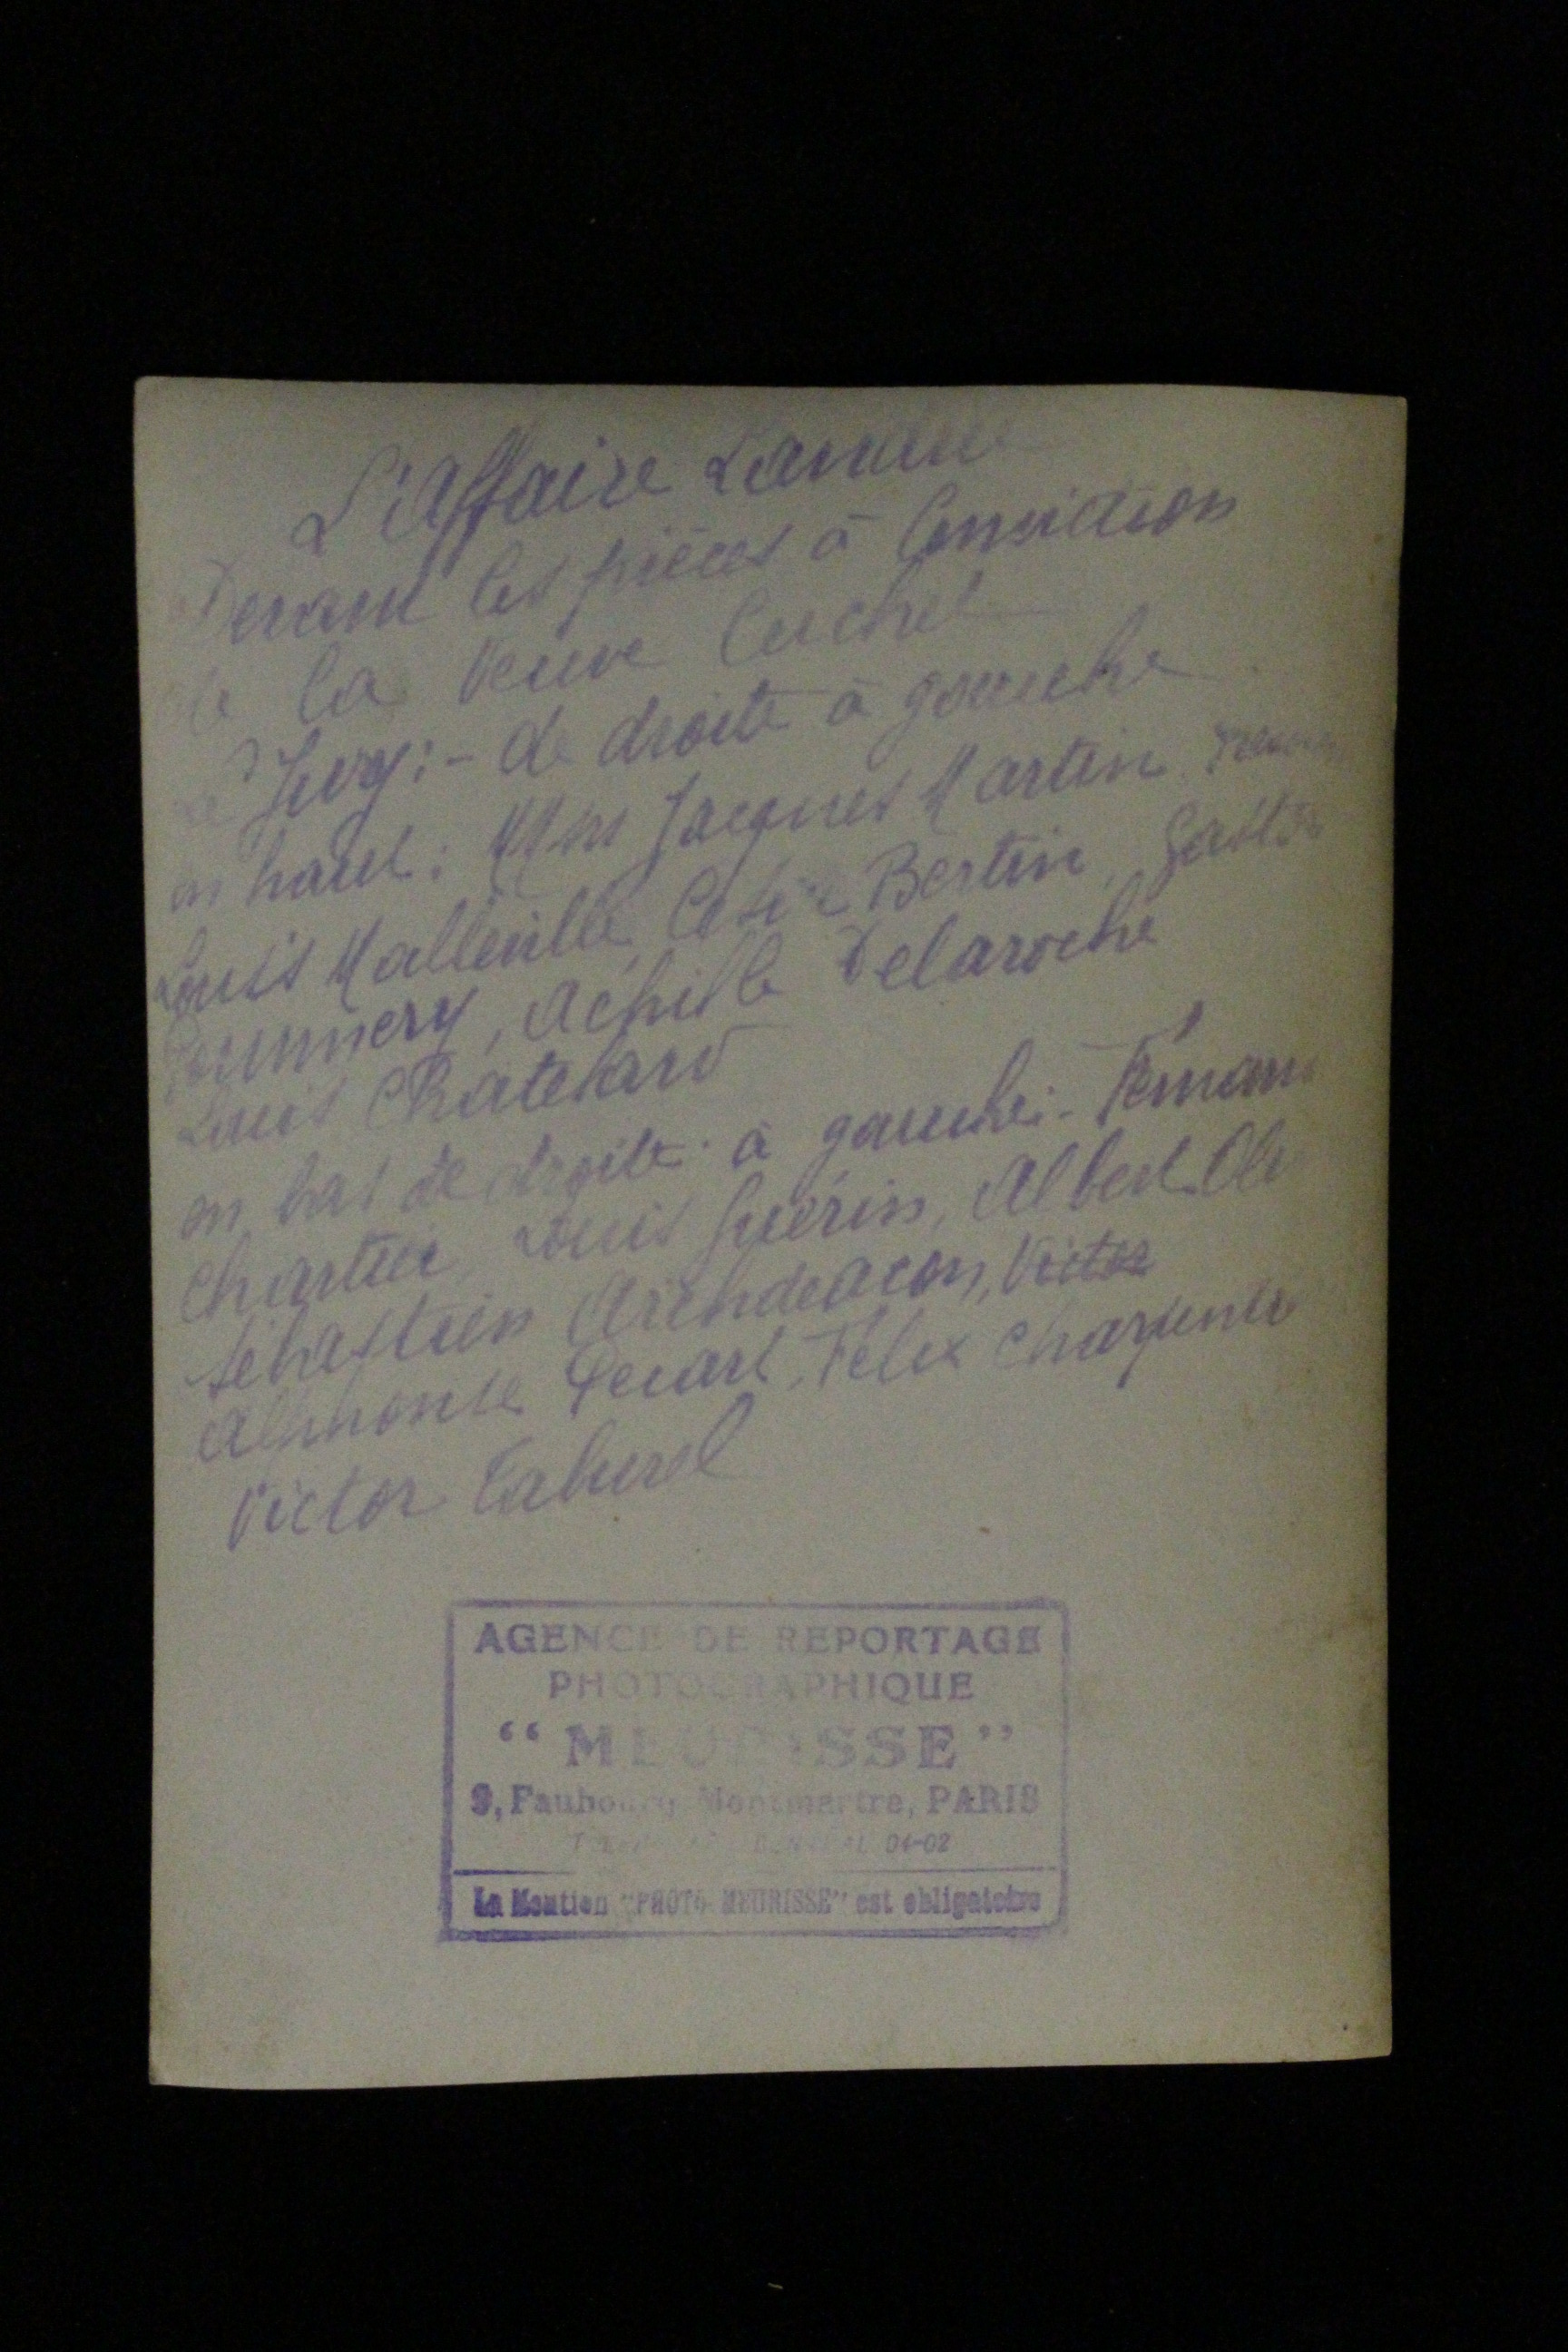 L'Affaire Landru
Devant les pièces à Conviction
de la Veuve Cuchet
Le Jury :- de droite à gauche
en haut : MMrs Jacques Martin
Louis Malleville, Bertin, Gaston
Achille Delaroche
Louis Chatelard
en bas de droite à gauche :- Fernand
Chartier, Louis Guérin, Albert
Sébastien Archdeacon, Victor
Alphonse Félix Charpentier
Victor
AGENCE DE REPORTAGE
PHOTOGRAPHIQUE
"MEURISSE"
9, Faubourg Montmartre, PARIS
04-02
La Mention "PHOTO MEURISSE" est obligatoire